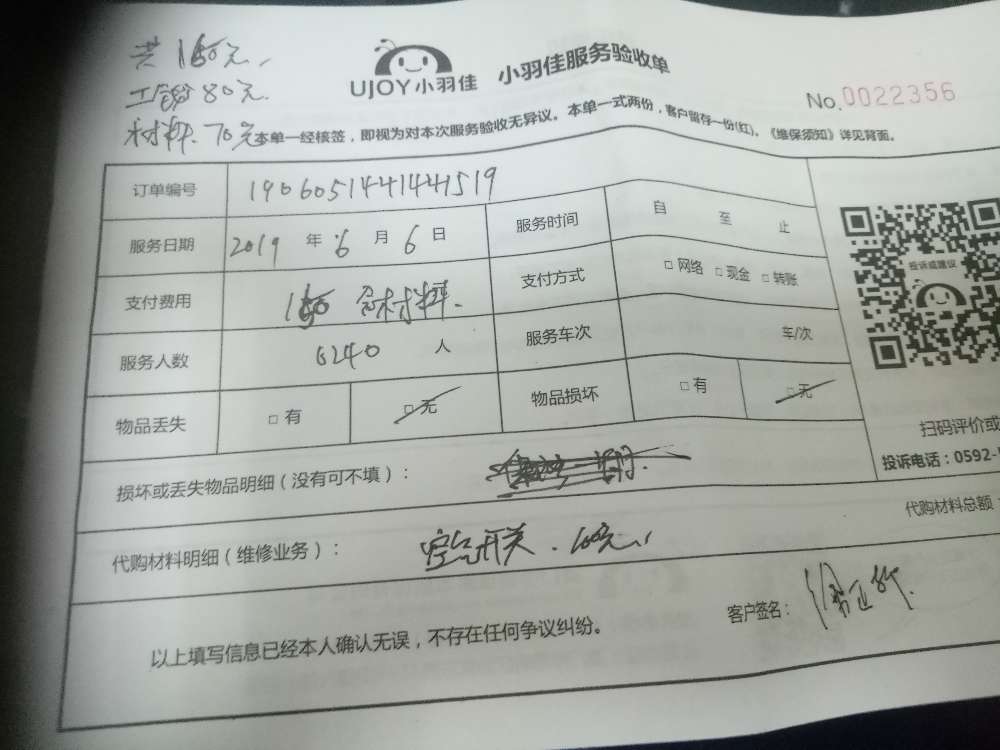 共150元,
工价80元.
材料.70元
UJOY小羽佳
小羽佳服务验收单
No.0022356
本单一经核签，即视为对本次服务验收无异议。本单一式两份，客户留存一份(红)。《维保须知》详见背面。
订单编号 190605144144519
服务日期 2019 年 6 月 6 日 服务时间 自 至 止
支付费用 150 含材料. 支付方式 □ 网络 □ 现金 □ 转账
服务人数 6240 人 服务车次 车/次
物品丢失 □ 有 □ 无 物品损坏 □ 有 □ 无
投诉或建议
扫码评价或
投诉电话：0592-
损坏或丢失物品明细（没有可不填）：
代购材料总额：
代购材料明细（维修业务）： 空气开关.
客户签名：
以上填写信息已经本人确认无误，不存在任何争议纠纷。